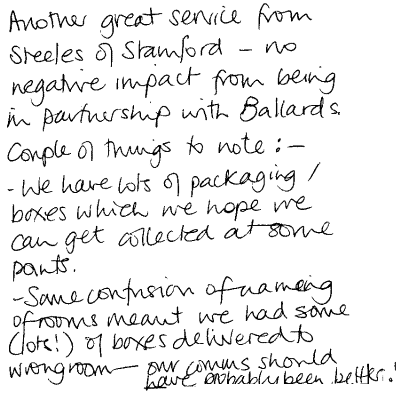 Another great service from
Steeles of Stamford – no
negative impact from being
in partnership with Ballards.
Couple of things to note :–
- We have lots of packaging /
boxes which we hope we
can get collected at some
points.
- Some confusion of naming
of rooms meant we had some
(lots!) of boxes delivered to
wrong room – our comms should
have probably been better!